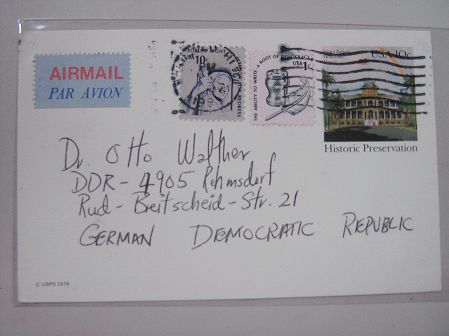 AIRMAIL
PAR AVION
10c
THE ABILITY TO WRITE A ROOT OF DEMOCRACY
USA
USA 10c
Historic Preservation
Dr. Otto Walther
DDR - 4905 Rehmsdorf
Rud - Beitscheid - Str. 21
GERMAN DEMOCRATIC REPUBLIC
© USPS 1979